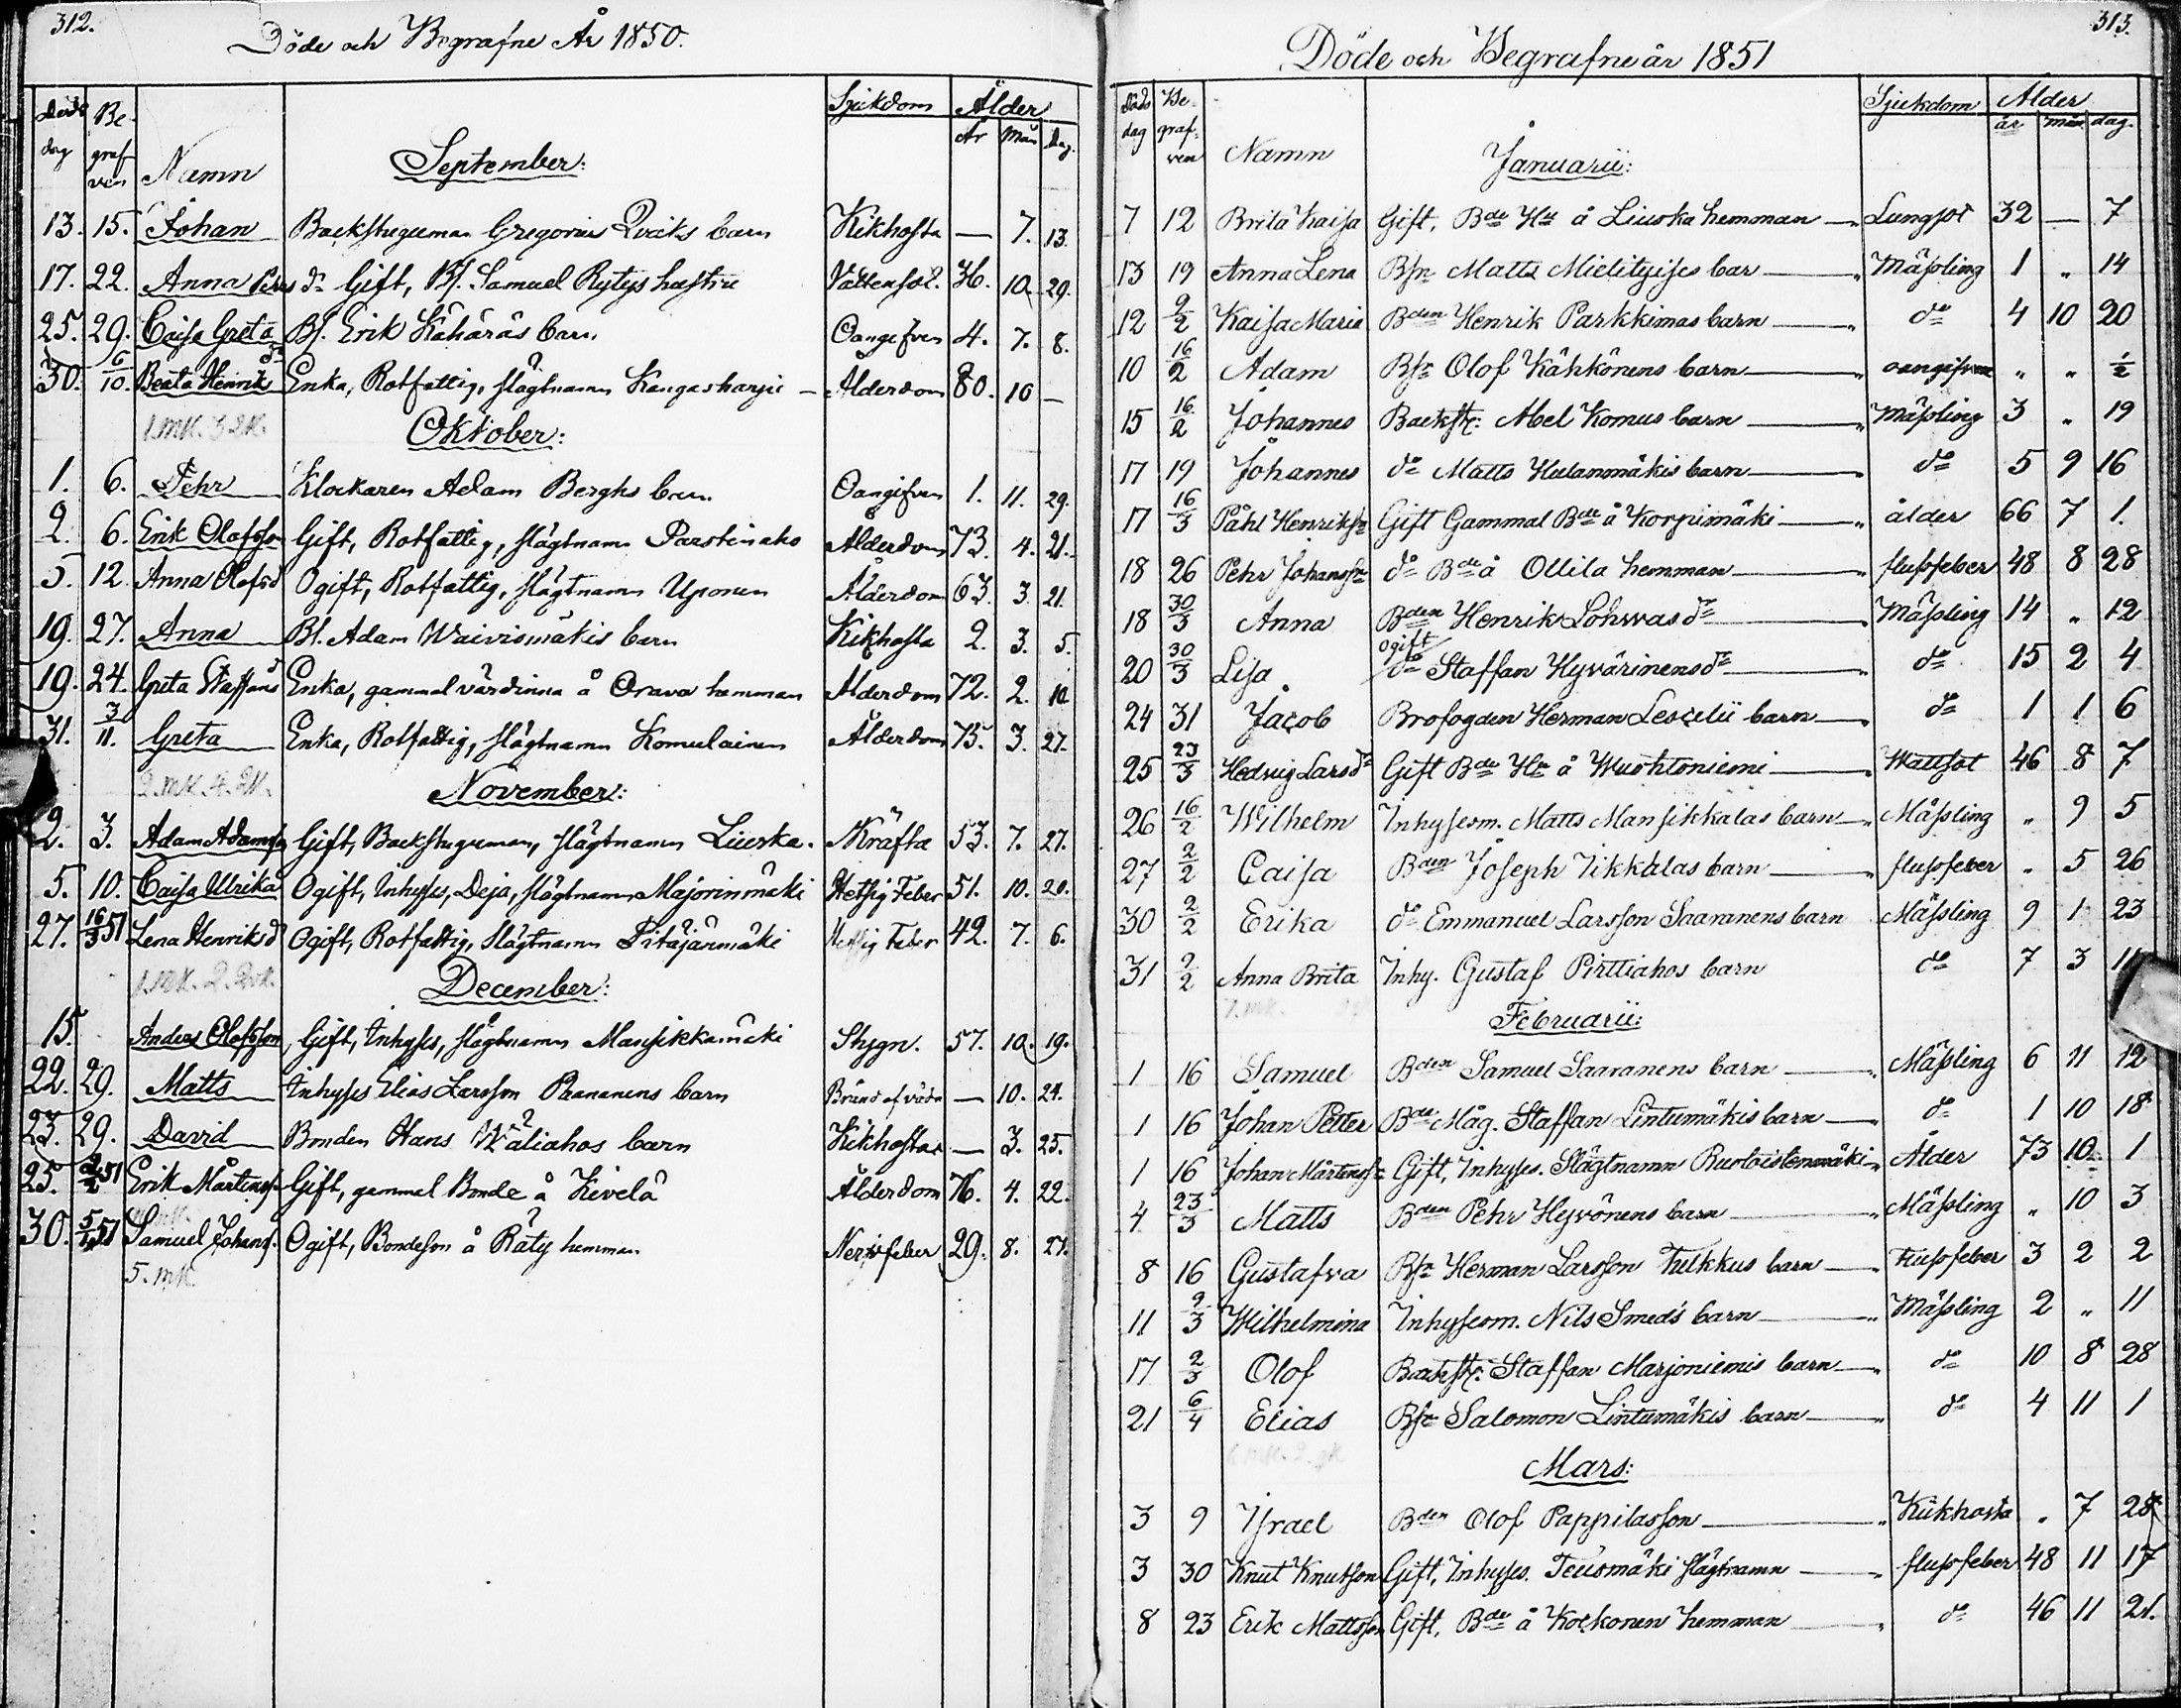 312.
Döde och Begrafne År 1850.
Döds dag Be-graf ven Namn Sjukdom Ålder År Mån Dag.
September:
13. 15. Johan Backstuguman Gregorius Qvicks barn Kikhosta — 7. 13.
17. 22. Anna Pers dr Gift, Bf. Samuel Rytys hustru Vattensot. 36. 10. 29.
25. 29. Caisa Greta Bf. Erik Kähäräs barn Oangifven 4. 7. 8.
30. 6/10. Beata Henriks dr Enka, Rotfattig, slägtnamn Kangasharju — Ålderdom 80. 10 —
1. MK. 3 QK.
Oktober:
1. 6. Pehr Klockaren Adam Berghs barn Oangifven 1. 11. 29.
2. 6. Erik Olofsson Gift, Rotfattig, slägtnamn Parstinaho Ålderdom 73. 4. 21.
5. 12. Anna Olofsd Ogift, Rotfattig, slägtnamn Uponen Ålderdom 63. 3. 21.
19. 27. Anna Bf. Adam Waivismäkis barn Kikhosta 2. 3. 5.
19. 24. Greta Staffans d Enka, gammal värdinna å Orava hemman Ålderdom 72. 2. 10
31. 3/11. Greta Enka, Rotfattig, slägtnamn Komulainen Ålderdom 75. 3. 27.
2. MK. 4. QK.
November:
2. 3. Adam Adamss Gift, Backstuguman, slägtnamn Liuska. Kräfta 53. 7. 27.
5. 10. Caisa Ulrika Ogift, Inhyses, Deja, slägtnamn Majorinmäki Hetsig Feber 51. 10. 20.
27. 16/3 51 Lena Henriksd Ogift, Rotfattig, slägtnamn Pitäjänmäki Hetsig Feber 42. 7. 6.
1. MK. 2. QK.
December:
15. Anders Olofsson, Gift, Inhyses, slägtnamn Mansikkamäki Stygn. 57. 10. 19.
22. 29. Matts Inhyses Elias Larsson Paananens barn Bränd af våda — 10. 24.
23. 29. David Bonden Hans Wäliahos barn Kikhosta — 3. 25.
25. 2/2 51 Erik Mårtenss Gift, gammal Bonde å Kivelä Ålderdom 76. 4. 22.
30. 5/1 51 Samuel Johans. Ogift, Bondeson å Räty hemman Nervfeber 29. 8. 27.
5. MK.
313.
Döde och Begrafne år 1851
Döds dag Be-graf-ven Namn Sjukdom Ålder år mån dag.
Januarii:
7 12 Brita Kaisa Gift, Bde Hu å Liuska hemman — Lungsot 32 — 7
13 19 Anna Lena Bfn Matts Mielityises bar — Mässling 1 „ 14
12 9/2 Kaisa Maria Bden Henrik Parkkimas barn — do 4 10 20
10 16/2 Adam Bfn Olof Kähkönens barn — oangifven „ „ 1/2
15 16/2 Johannes Backst: Abel Komus barn — Mässling 3 „ 19
17 19 Johannes do Matts Hulanmäkis barn — do 5 9 16
17 16/3 Påhl Henriksn Gift Gammal Bde å Korpimäki — ålder 66 7 1.
18 26 Pehr Johanssn do Bde å Ollila hemman — flussfeber 48 8 28
18 30/3 Anna Bden Henrik Lohwas dr Mässling 14 „ 12
20 30/3 Lisa ogift do Staffan Hyvärinens dr — do 15 2 4
24 31 Jacob Brofogden Herman Lescelii barn — do 1 1 6
25 23/3 Hedvig Lars dr Gift Bde Hu å Wuohtoniemi — Wattsot 46 8 7
26 16/2 Wilhelm Inhysesm. Matts Mansikkalas barn — Mässling „ 9 5
27 2/2 Caisa Bden Joseph Tikkalas barn — flussfeber „ 5 26
30 2/2 Erika do Emmanuel Larsson Saaranens barn Mässling 9 1 23
31 9/2 Anna Brita Inhy. Gustaf Pirttiahos barn do 7 3 11
Februarii:
1 16 Samuel Bden Samuel Saaranens barn — Mässling 6 11 12
1 16 Johan Petter Bde Måg. Staffan Lintumäkis barn — do 1 10 18
1 16 Johan Mårtenssn Gift, Inhyses. Slägtnamn Ruotoistenmäki Ålder 73 10 1
4 23/3 Matts Bden Pehr Hyvönens barn — Mässling „ 10 3
8 16 Gustafva Bfn Herman Larsson Tulkkus barn — Flussfeber 3 2 2
11 9/3 Wilhelmina Inhysesm. Nils Smeds barn — Mässling 2 „ 11
17 2/3 Olof Backst: Staffan Marjoniemis barn — do 10 8 28
21 6/4 Elias Bfn Salomon Lintumäkis barn — do 4 11 1
Mars:
3 9 Israel Bden Olof Pappilas son — Kikhosta „ 7 28
3 30 Knut Knutson Gift, Inhyses. Teusmäki slägtnamn — flussfeber 48 11 17
8 23 Erik Mattsson Gift, Bde å Kokkonen hemman — do 46 11 21.